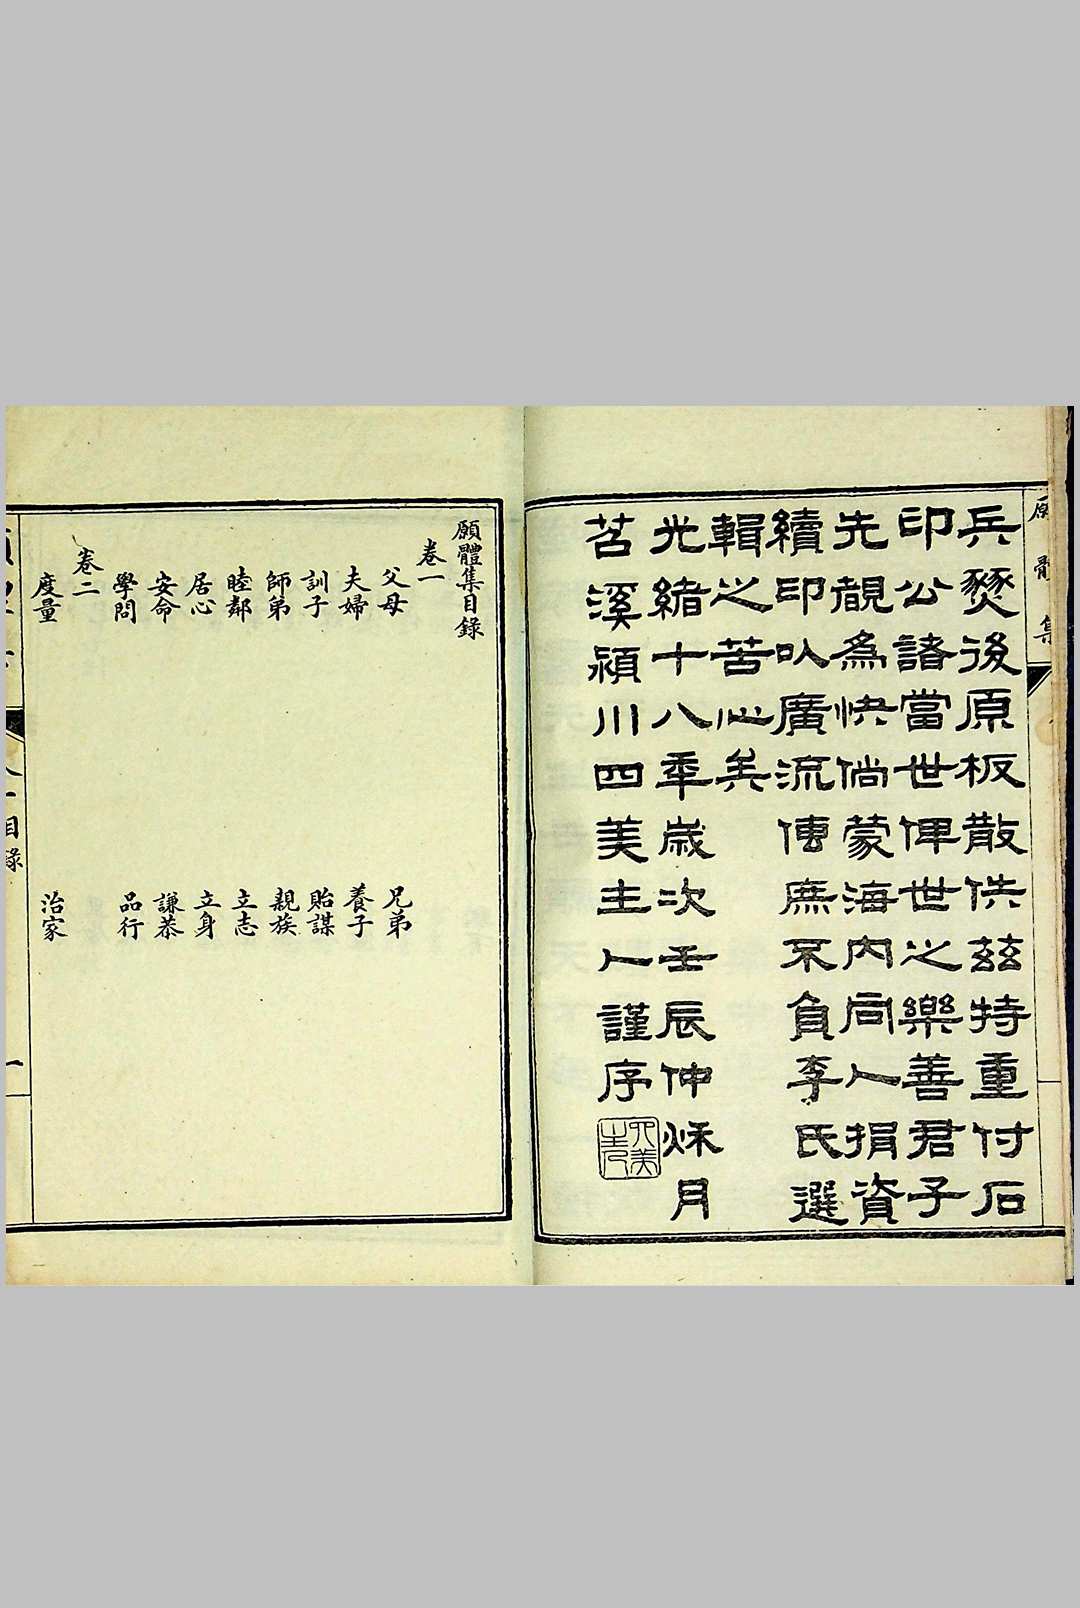 願體集
兵燹後原板散佚茲特重付石
印公諸當世俾世之樂善君子
先覩為快倘蒙海內同人捐資
續印以廣流傳庶不負李氏選
輯之苦心矣
光緒十八年歲次壬辰仲秋月
苕溪潁川四美主人謹序
四美主人
願體集目錄
卷一
父母 兄弟
夫婦 養子
訓子 貽謀
師弟 親族
睦鄰 立志
居心 立身
安命 謙恭
學問 品行
卷二
度量 治家
目錄 一